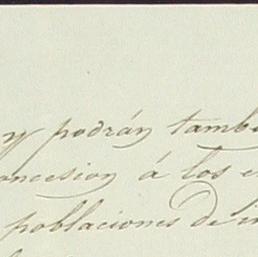 y podrán tamb
oncesion á los e
poblaciones de in